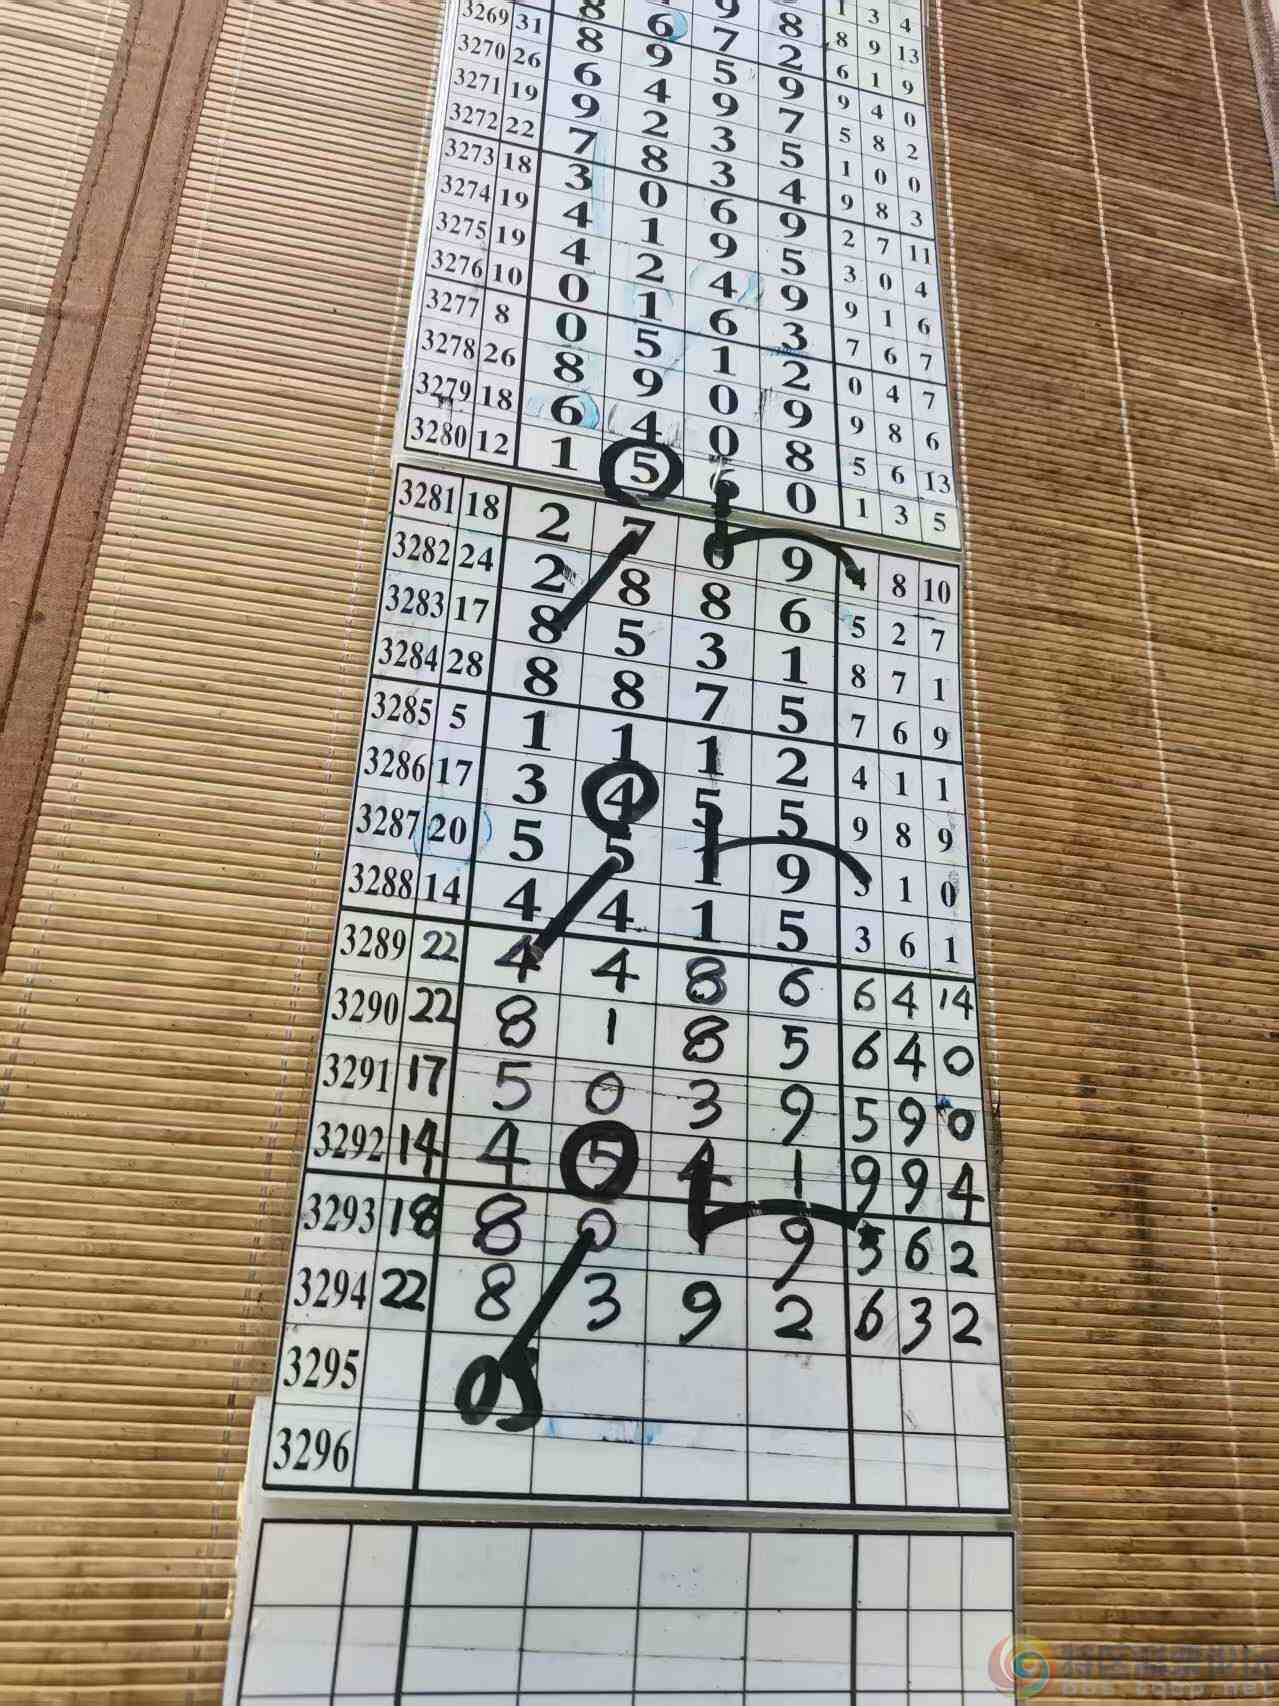 1 3 4
8 9 8 8 9 13
8 6 7 2 6 1 9
3269 31 8 9 5 9 9 4 0
3270 26 6 4 9 7 5 8 2
3271 19 9 2 3 5 1 0 0
3272 22 7 8 3 4 9 8 3
3273 18 3 0 6 9 2 7 11
3274 19 4 1 9 5 3 0 4
3275 19 4 2 4 9 9 1 6
3276 10 0 1 6 3 7 6 7
3277 8 0 5 1 2 0 4 7
3278 26 8 9 0 9 9 8 6
3279 18 6 4 0 8 5 6 13
3280 12 1 5 6 0 1 3 5
3281 18 2 7 0 9 4 8 10
3282 24 2 8 8 6 5 2 7
3283 17 8 5 3 1 8 7 1
3284 28 8 8 7 5 7 6 9
3285 5 1 1 1 2 4 1 1
3286 17 3 4 5 5 9 8 9
3287 20 5 5 1 9 5 1 0
3288 14 4 4 1 5 3 6 1
3289 22 4 4 8 6 6 4 14
3290 22 8 1 8 5 6 4 0
3291 17 5 0 3 9 5 9 0
3292 14 4 5 4 1 9 9 4
3293 18 8 0 1 9 5 6 2
3294 22 8 3 9 2 6 3 2
3295 05
3296